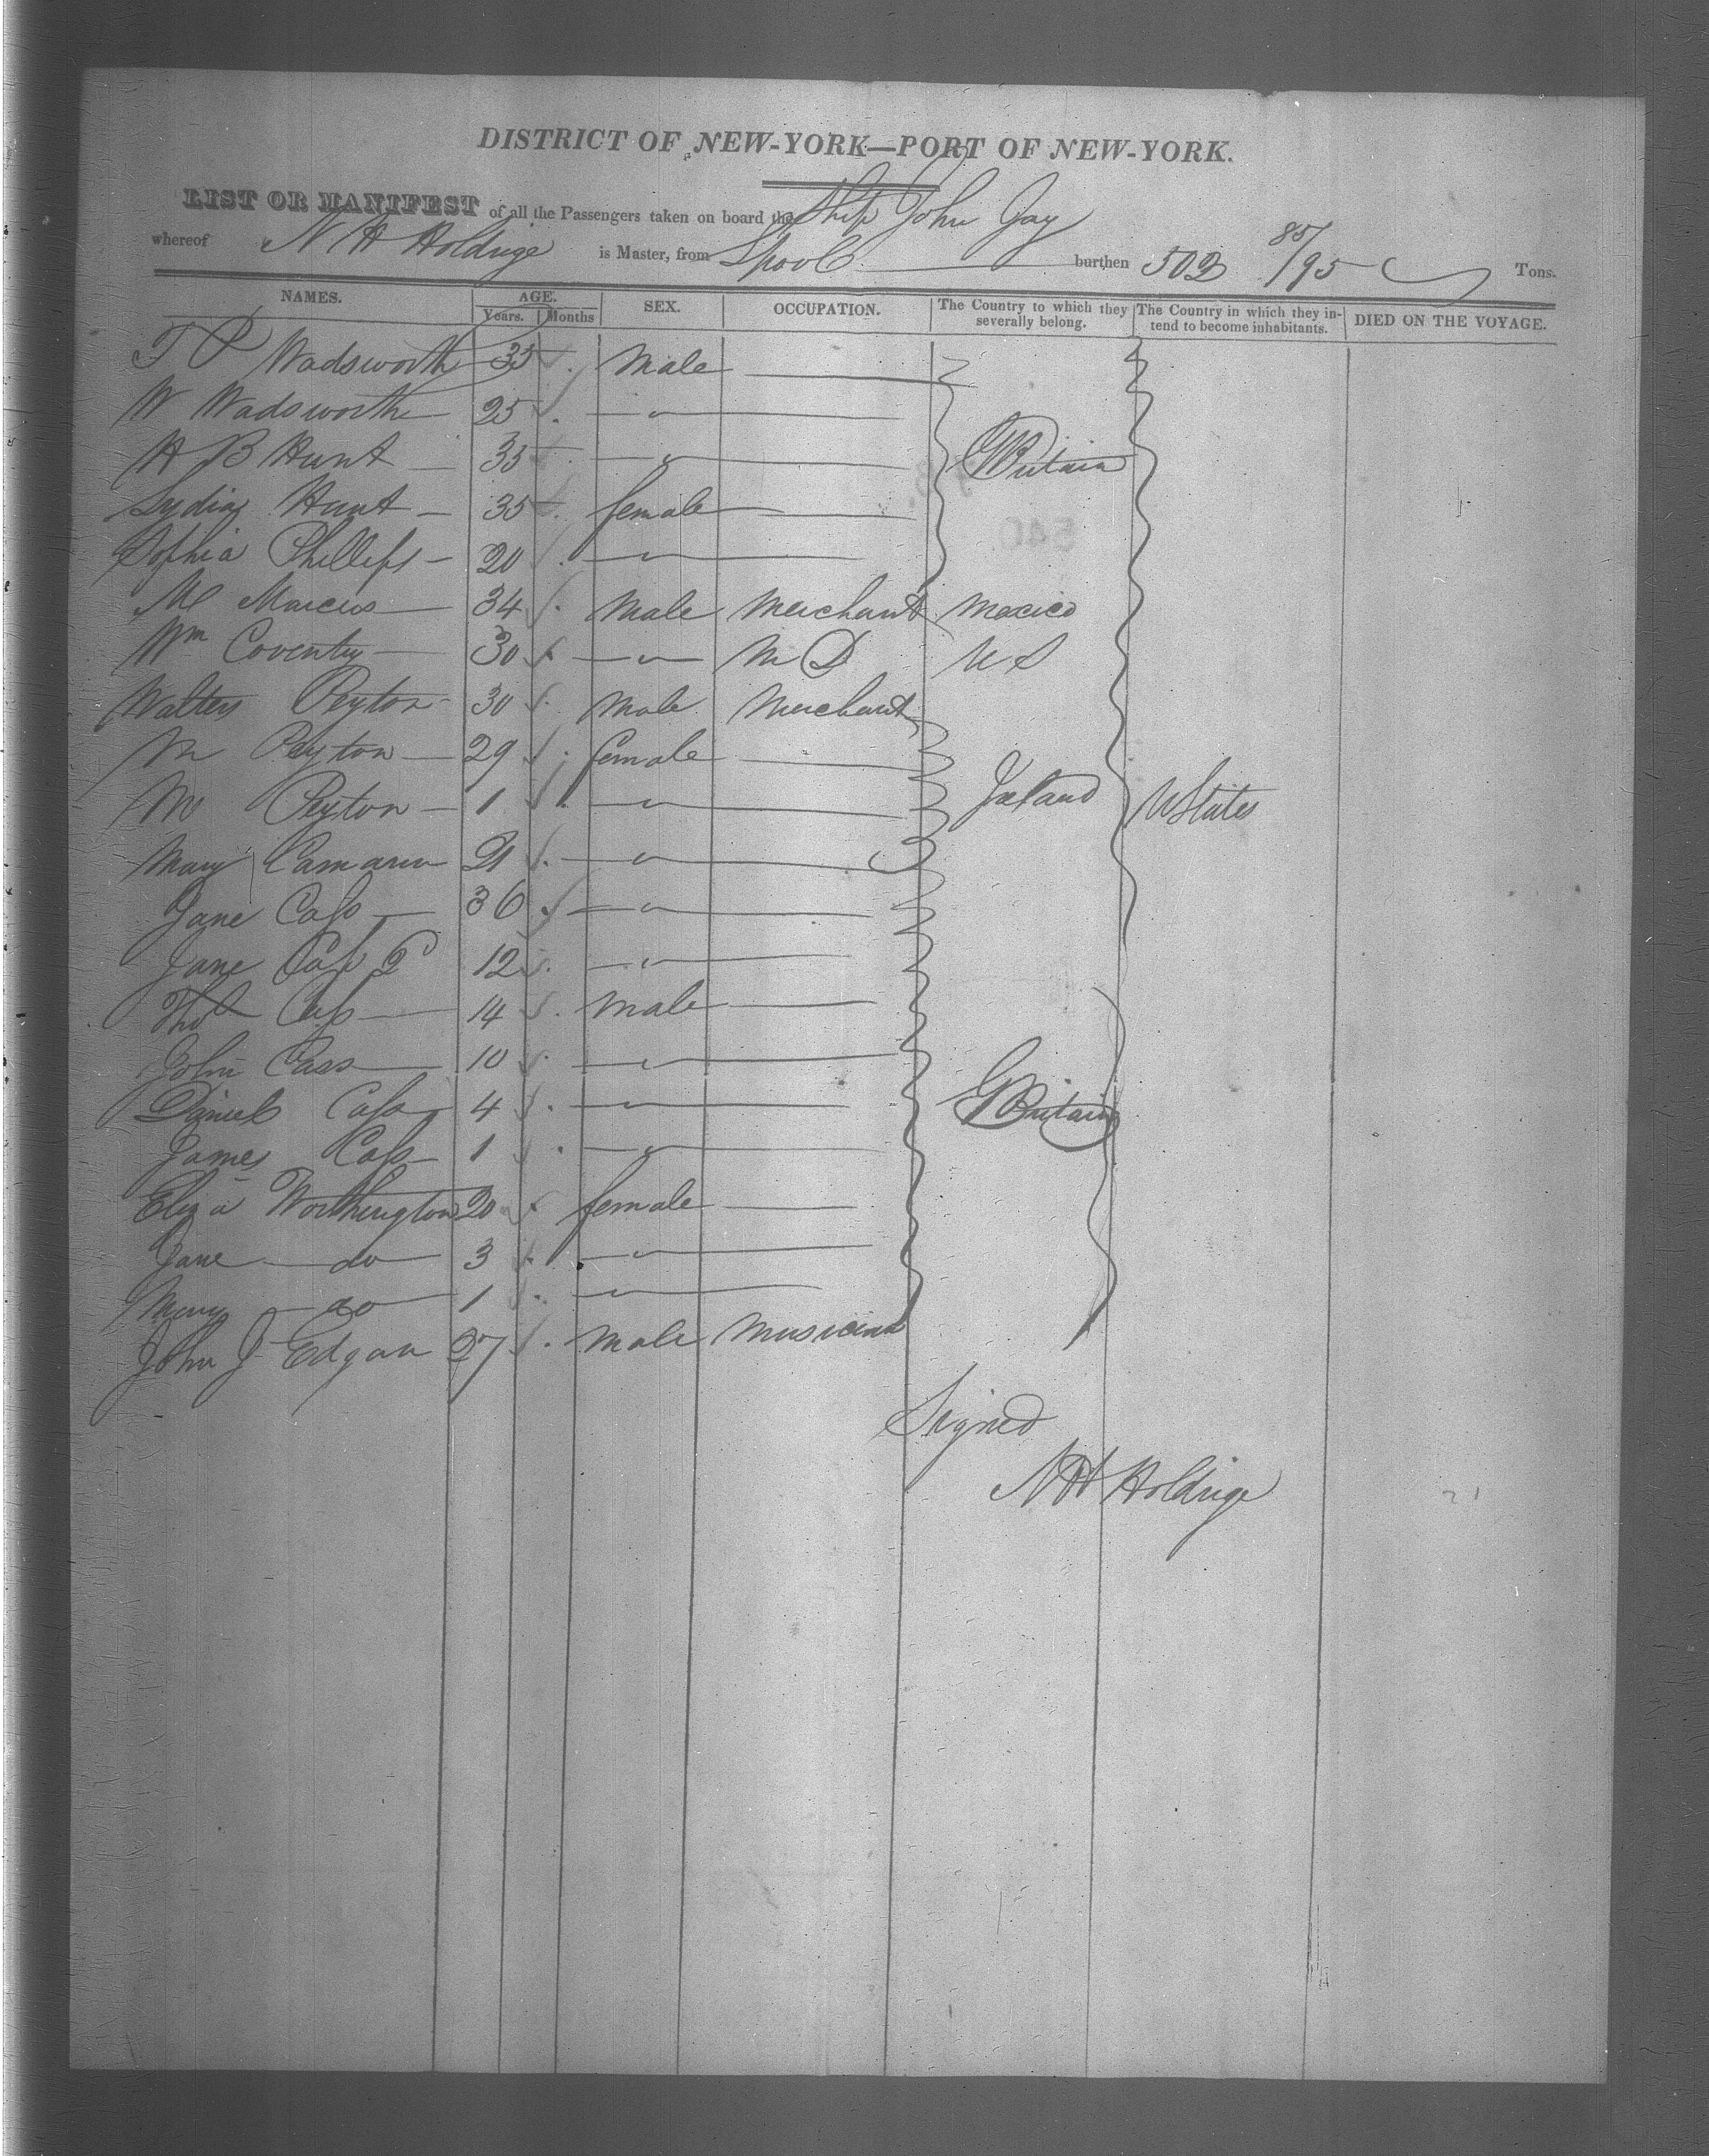 DISTRICT OF NEW-YORK—PORT OF NEW-YORK.
LIST OR MANIFEST of all the Passengers taken on board the Ship John Jay
whereof N H Holdrige is Master, from Lpool burthen 502 85/95 Tons.
NAMES. AGE. SEX. OCCUPATION. The Country to which they severally belong. The Country in which they intend to become inhabitants. DIED ON THE VOYAGE.
Years. Months
Wadsworth 35 Male
W Wadsworth 25 "
H B Hunt 35 " GBritain
Lydia Hunt 35 female
Sophia Phillips 20 "
M Marcus 34 Male Merchant Mexico
Wm Coventry 30 " M D U S
Walters Peyton 30 Male Merchant
M Peyton 29 female
M Peyton 1 " Ireland UStates
Mary 21 "
Jane Cass 36 "
Jane Cass 2 12 "
Thos Cass 14 Male
John Cass 10 "
Daniel Cass 4 " GBritain
James Cass 1 "
Eliza Worthington 20 female
Jane do 3 "
Mary do 1 "
John J Edgar 27 Male Musician
Signed
N H Holdrige
21